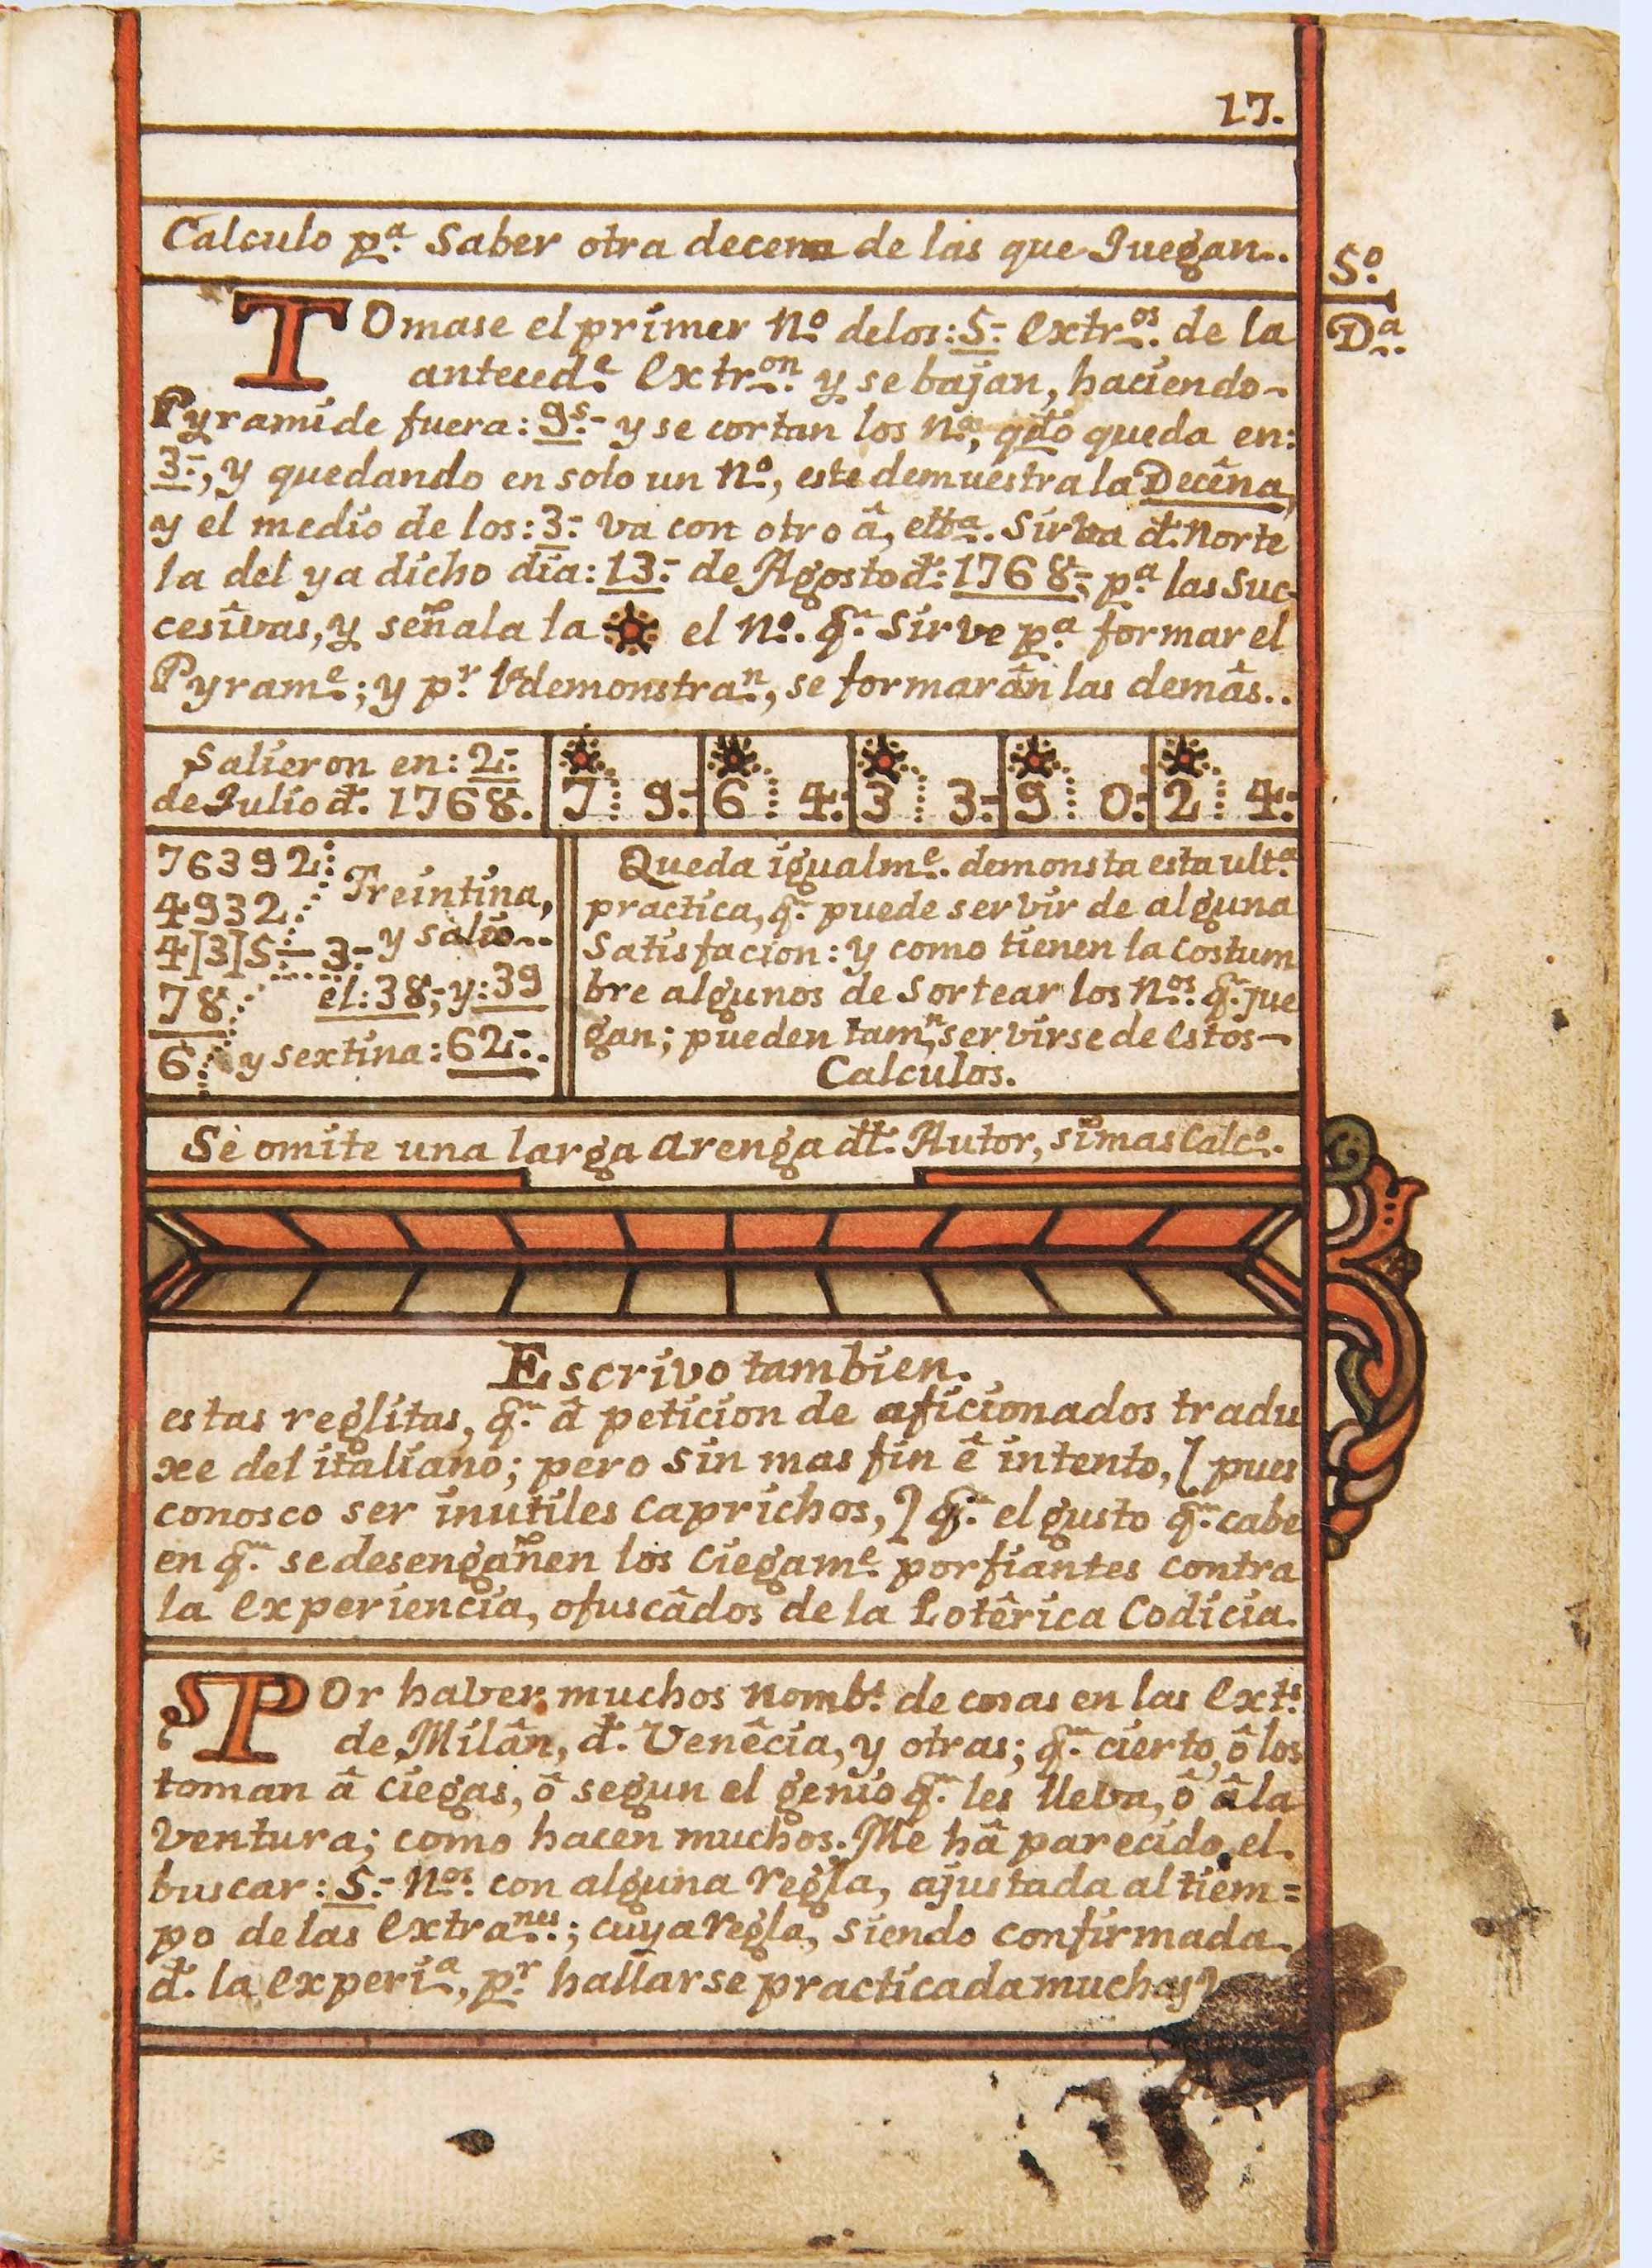 17.
Calculo p.ª Saber otra decena de las que Juegan..
5º.
D.ª
TOmase el primer Nº. delos: 5.- extr.os de la
anteced.e extr.on y se bajan, haciendo-
Pyramide fuera: 9.s- y se cortan los N.os, qdo queda en:
3.-, y quedando en solo un Nº., este demuestra la Decêna,
y el medio de los: 3.- va con otro â, Sirva đ. Norte
la del ya dicho dia: 13.- de Agosto đ: 1768.-; p.ª las Suc-
cesivas, y señala la el Nº. q.e Sirve p.ª formar el
Pyram.e; y p.r demonstra.n, se formarân las demâs..
Salieron en: 2.-
de Julio đ. 1768.
7 9.- 6 4.- 3 3.- 9 0.- 2 4.-
76392
4932
4]3]5 - 3.-
78
6
Treintina,
y salio..
el: 38,- y: 39
y sextina: 62.-.
Queda igualm.e demonsta esta ult.ª
practica, q.e puede servir de alguna
Satisfacion: y como tienen la costum
bre algunos de Sortear los N.os q.e jue
gan; pueden tam.n servirse de estos-
Calculos.
Se omite una larga arenga đt. Autor, simas Calc.o
Escrivo tambien.
estas reglitas, q.e â peticion de aficionados tradu
xe del italiano; pero sin mas fin ê intento, [ pues
conosco ser inutiles caprichos, ] q.e el gusto q.e cabe
en q.e se desengañen los ciegam.e porfiantes contra
la experiencia, ofuscâdos de la Lotêrica Codicia.
POr haver muchos nomb.s de cosas en las ext.s
de Milân, đ. Venêcia, y otras; q.e cierto, ô los
toman â ciegas, ô segun el genio q.e les lleva, ô âla
ventura; como hacen muchos. Me hâ parecido el.
buscar: 5.- N.os con alguna regla, ajustada al tiem=
po de las extra.nes; cuya regla, siendo confirmada.
đ. la experi.ª, p.r hallarse practicada muchas